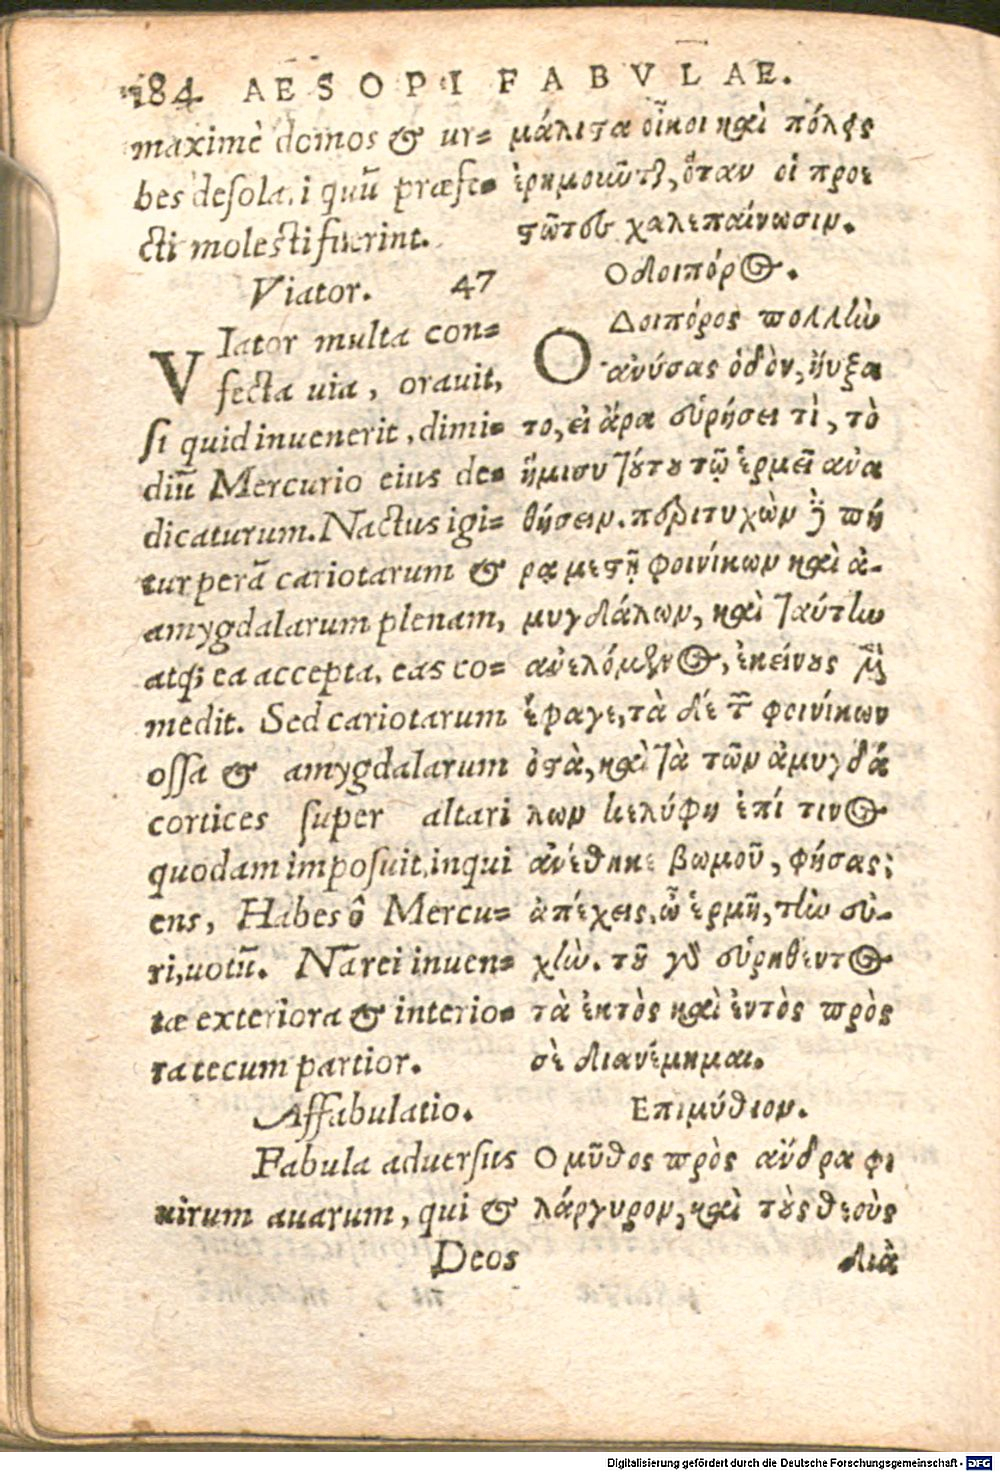 184 AESOPI FABVLAE.
maximè domos & ur-
bes desola.i quũ præfe-
cti molesti fuerint.
Viator. 47
VIator multa con-
fecta uia, orauit,
si quid inuenerit, dimi-
diũ Mercurio eius de-
dicaturum. Nactus igi-
tur perã cariotarum &
amygdalarum plenam,
atq; ea accepta, eas co-
medit. Sed cariotarum
ossa & amygdalarum
cortices super altari
quodam imposuit, inqui
ens, Habes ô Mercu-
ri, uotũ. Nã rei inuen-
tæ exteriora & interio-
ra tecum partior.
Affabulatio.
Fabula aduersus
uirum auarum, qui &
Deos
μάλιστα οἶκοι καὶ πόλεις
ἐρημοῦνται, ὅταν οἱ προε
στῶτες χαλεπαίνωσιν.
Οδοιπόρος.
ΟΔοιπόρος πολλὴν
ἀνύσας ὁδὸν, ἤυξα
το, εἰ ἄρα εὑρήσει τὶ, τὸ
ἥμισυ τούτου τῷ ἑρμεῖ ἀνα
θήσειν. περιτυχὼν δὲ πή
ρᾳ μεστῇ φοινίκων καὶ ἀ-
μυγδάλων, καὶ ταύτην
ἀνελόμενος, ἐκείνους μὲν
ἔφαγε, τὰ δέ τῶν φοινίκων
ὀστὰ, καὶ τὰ τῶν ἀμυγδά
λων κελύφη ἐπί τινος
ἀνέθηκε βωμοῦ, φήσας;
ἀπέχεις, ὦ ἑρμῆ, τὴν εὐ-
χὴν. τοῦ γὰρ εὑρηθέντος
τὰ ἐκτὸς καὶ ἐντὸς πρὸς
σὲ διανέμημαι.
Επιμύθιον.
Ο μῦθος πρὸς ἄνδρα φι
λάργυρον, καὶ τοὺς θεοὺς
διὰ
Digitalisierung gefördert durch die Deutsche Forschungsgemeinschaft - DFG